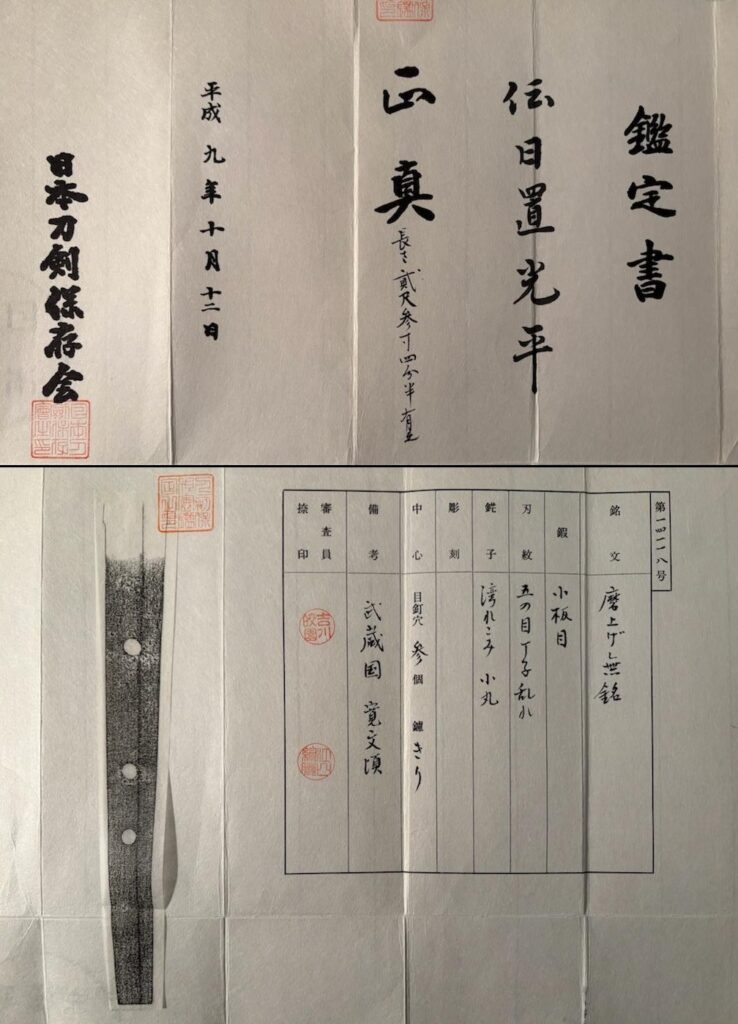 鑑定書
伝日置光平
正真
長さ貳尺参寸四分半有之
平成九年十月十二日
日本刀剣保存会
第一四一一八号
銘文 磨上げ無銘
鍜 小板目
刃紋 五の目丁子乱れ
鋩子 湾れこみ小丸
彫刻
中心 目釘穴 参個 鑢 きり
備考 武蔵国 寛文頃
審査員
捺印